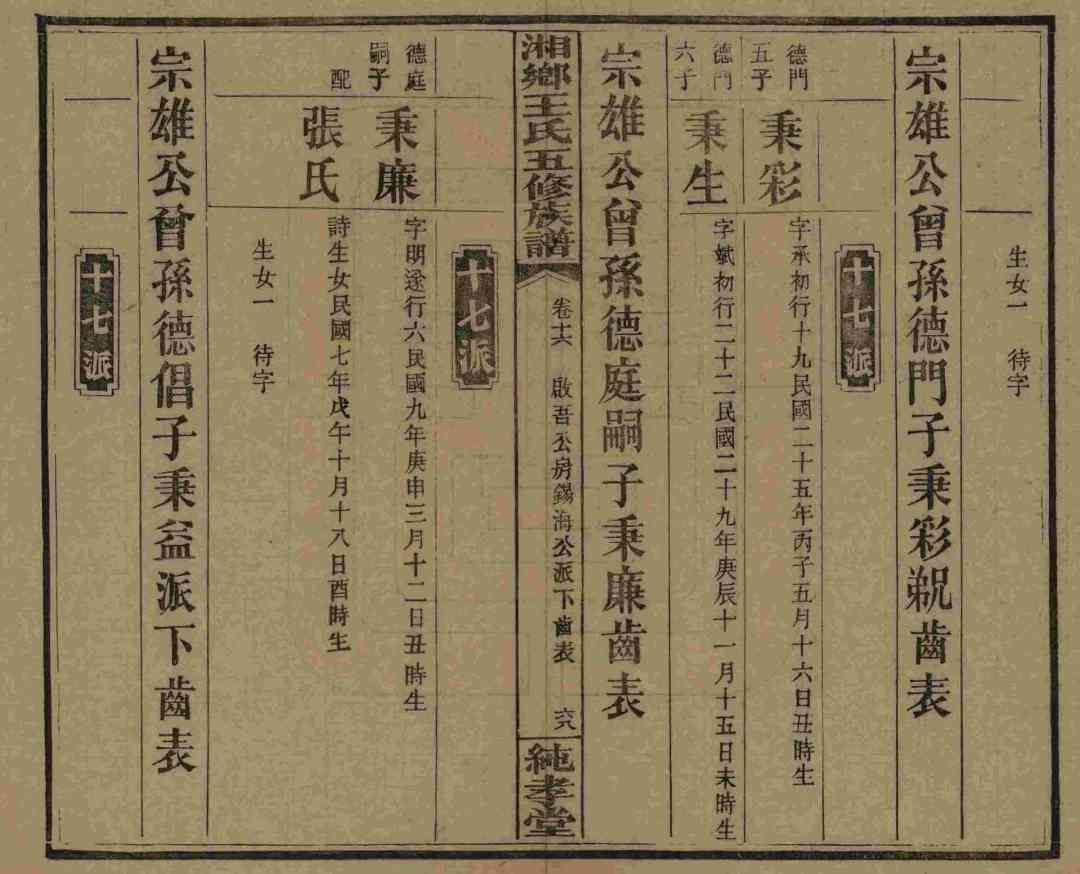 生女一 待字
宗雄公曾孫德門子秉彩弟兄齒表
十七派
德門
五子
秉彩
字承初行十九民國二十五年丙子五月十六日丑時生
德門
六子
秉生
字斌初行二十二民國二十九年庚辰十一月十五日未時生
宗雄公曾孫德庭嗣子秉廉齒表
湘鄉王氏五修族譜
卷十六 啟吾公房錫海公派下齒表 六八
純孝堂
十七派
德庭
嗣子
秉廉
字明遂行六民國九年庚申三月十二日丑時生
配
張氏
詩生女民國七年戊午十月十八日酉時生
生女一 待字
宗雄公曾孫德倡子秉益派下齒表
十七派